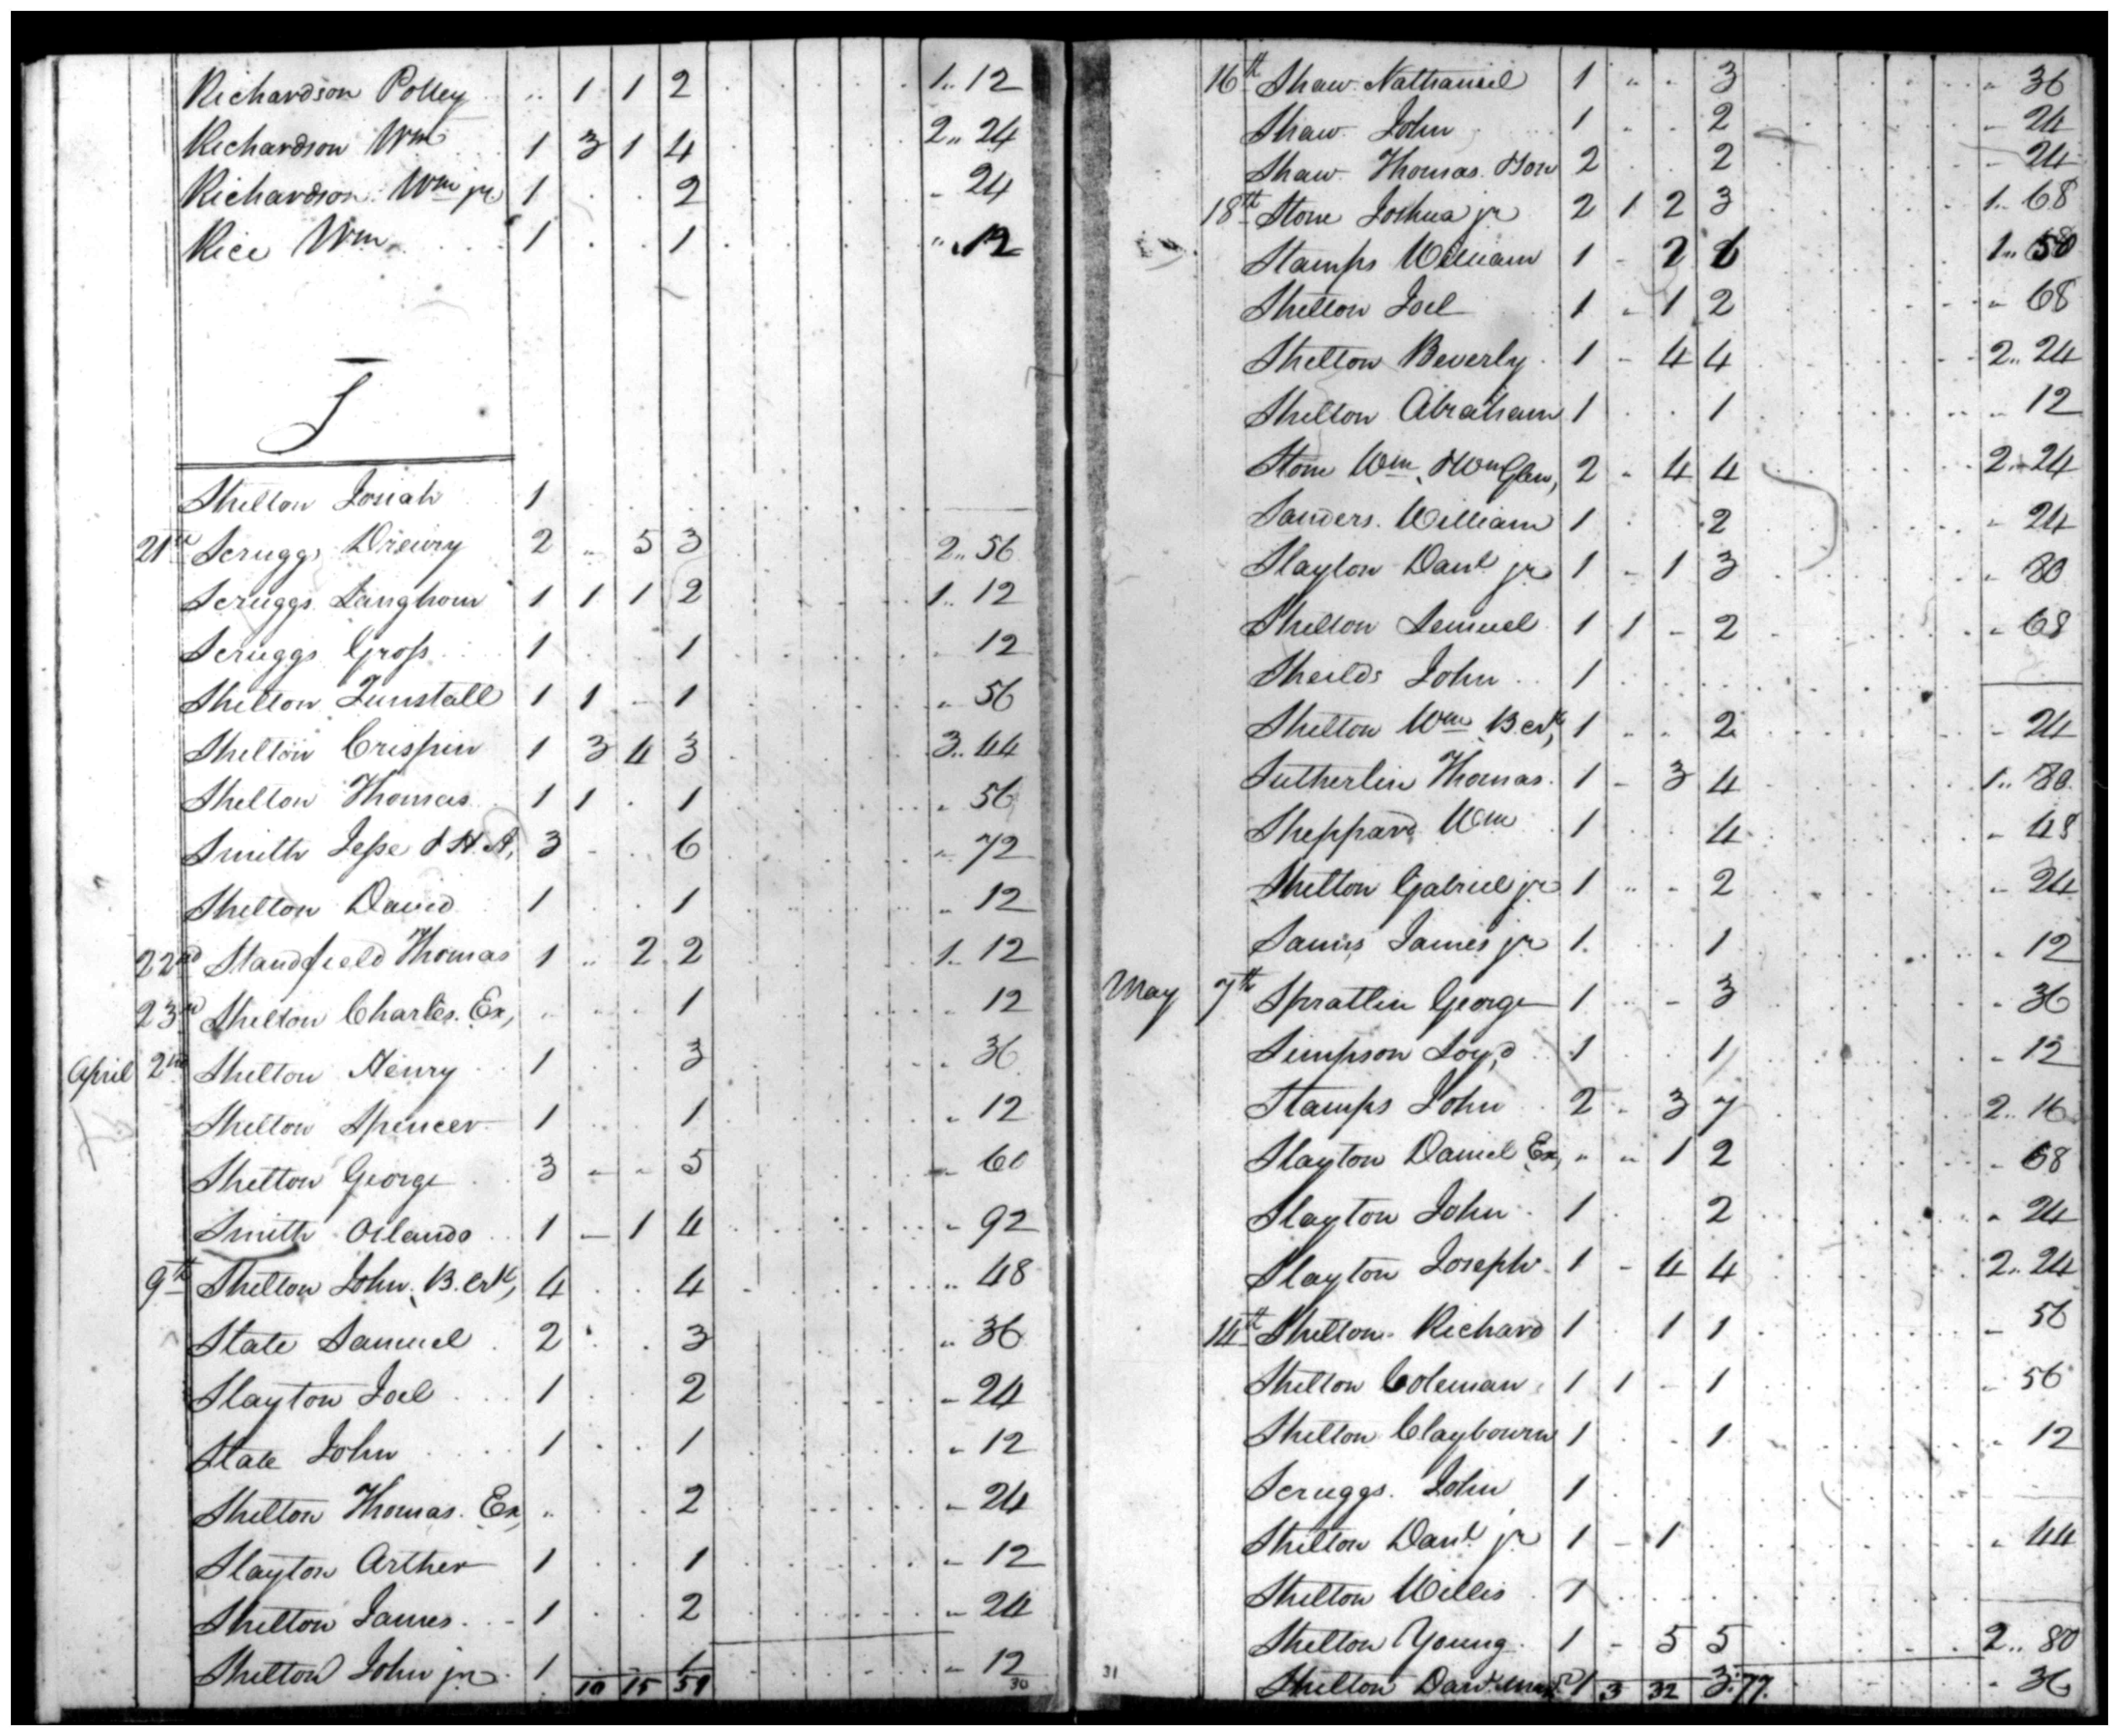 Richardson Polley .. 1 1 2 1.. 12
Richardson Wm 1 3 1 4 2.. 24
Richardson Wm jr 1 . . 2 - 24
Rice Wm 1 . . 1 " 12
S
Shelton Josiah 1
21st Scruggs Drewry 2 .. 5 3 2.. 56
Scruggs Langhorn 1 1 1 2 1.. 12
Scruggs Gross 1 . . 1 12
Shelton Tunstall 1 1 - 1 - 56
Shelton Crispin 1 3 4 3 3.. 44
Shelton Thomas 1 1 . 1 - 56
Smith Jesse & H. A, 3 - . 6 - 72
Shelton David 1 . . 1 - 12
22nd Standfield Thomas 1 .. 2 2 1.. 12
23rd Shelton Charles. Ex, . . . 1 . 12
April 2nd Shelton Henry 1 . . 3 . 36
Shelton Spencer 1 . . 1 . 12
Shelton George 3 - - 5 - 60
Smith Orlando 1 - 1 4 - 92
9th Shelton John B. crk, 4 . . 4 .. 48
State Samuel 2 . . 3 .. 36
Slayton Joel 1 . . 2 - 24
State John 1 . . 1 - 12
Shelton Thomas. Ex, .. . . 2 - 24
Slayton Arther 1 . . 1 - 12
Shelton James 1 . . 2 - 24
Shelton John jr. 1 1 - 12
10 15 59
30
16th Shaw Nathaniel 1 .. . 3 - 36
Shaw John 1 . . 2 - 24
Shaw Thomas & son 2 . . 2 - 24
18th Stone Joshua jr 2 1 2 3 1.. 68
Stamps William 1 - 2 1..
Shelton Joel 1 - 1 2 - 68
Shelton Beverly 1 - 4 4 2.. 24
Shelton Abraham 1 . . 1 .. 12
Stone Wm, & Wm Glen, 2 - 4 4 2.. 24
Sanders William 1 . . 2 - 24
Slayton Danl jr 1 - 1 3 - 80
Shelton Lemuel 1 1 - 2 - 68
Sheilds John 1
Shelton Wm B. crk, 1 .. . 2 - 24
Sutherlin Thomas 1 - 3 4 1.. 80
Sheppard Wm 1 . . 4 - 48
Shelton Gabriel jr 1 .. - 2 - 24
Sams James jr 1 . . 1 - 12
May 7th Spratlin George 1 .. - 3 - 36
Simpson Loyd 1 . . 1 - 12
Stamps John 2 - 3 7 2.. 16
Slayton Daniel Ex, .. .. 1 2 - 68
Slayton John 1 . . 2 - 24
Slayton Joseph 1 - 4 4 2.. 24
14th Shelton Richard 1 . 1 1 - 56
Shelton Coleman 1 1 - 1 - 56
Shelton Claybourn 1 . . 1 - 12
Scruggs John 1
Shelton Danl jr 1 - 1 - 44
Shelton Willis 1
Shelton Young 1 - 5 5 2.. 80
Shelton 1 3 - 36
3 32 77
31